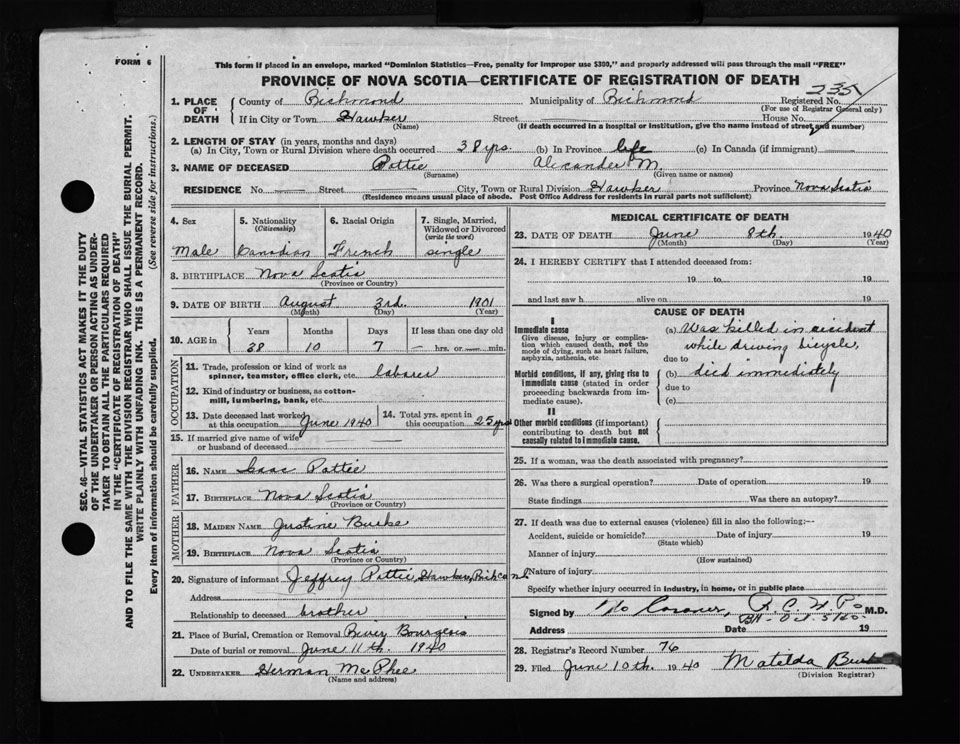 FORM 6
This form if placed in an envelope, marked "Dominion Statistics—Free, penalty for improper use $300," and properly addressed will pass through the mail "FREE"
PROVINCE OF NOVA SCOTIA—CERTIFICATE OF REGISTRATION OF DEATH
235
1. PLACE OF DEATH
County of Richmond Municipality of Richmond Registered No.
(For use of Registrar General only)
If in City or Town Hawker Street House No.
(Name) (If death occurred in a hospital or institution, give the name instead of street and number)
2. LENGTH OF STAY (in years, months and days)
(a) In City, Town or Rural Division where death occurred 38 yrs. (b) In Province life (c) In Canada (if immigrant)
3. NAME OF DECEASED Pottie Alexander M.
(Surname) (Given name or names)
RESIDENCE No Street City, Town or Rural Division Hawker Province Nova Scotia
(Residence means usual place of abode. Post Office Address for residents in rural parts not sufficient)
4. Sex Male
5. Nationality (Citizenship) Canadian
6. Racial Origin French
7. Single, Married, Widowed or Divorced (write the word) single
8. BIRTHPLACE Nova Scotia
(Province or Country)
9. DATE OF BIRTH August 3rd. 1901
(Month) (Day) (Year)
10. AGE in Years Months Days If less than one day old
38 10 7 hrs. or min.
OCCUPATION
11. Trade, profession or kind of work as spinner, teamster, office clerk, etc. laborer
12. Kind of industry or business, as cotton-mill, lumbering, bank, etc.
13. Date deceased last worked at this occupation June 1940
14. Total yrs. spent in this occupation 25 yrs
15. If married give name of wife or husband of deceased
FATHER
16. NAME Isaac Pottie
17. BIRTHPLACE Nova Scotia
(Province or Country)
MOTHER
18. MAIDEN NAME Justine Burke
19. BIRTHPLACE Nova Scotia
(Province or Country)
20. Signature of informant Jeffrey Pottie, Hawker, Rich co N.S.
Address
Relationship to deceased brother
21. Place of Burial, Cremation or Removal River Bourgeois
Date of burial or removal June 11th. 1940
22. UNDERTAKER Herman McPhee
(Name and address)
MEDICAL CERTIFICATE OF DEATH
23. DATE OF DEATH June 8th. 1940
(Month) (Day) (Year)
24. I HEREBY CERTIFY that I attended deceased from:
19 to 19
and last saw h alive on 19
CAUSE OF DEATH
I
Immediate cause
Give disease, injury or complication which caused death, not the mode of dying, such as heart failure, asphyxia, asthenia, etc.
(a) Was killed in accident
while driving bicycle,
due to
Morbid conditions, if any, giving rise to immediate cause (stated in order proceeding backwards from immediate cause).
(b) died immediately
due to
(c)
II
Other morbid conditions (if important) contributing to death but not causally related to immediate cause.
25. If a woman, was the death associated with pregnancy?
26. Was there a surgical operation? Date of operation 19
State findings Was there an autopsy?
27. If death was due to external causes (violence) fill in also the following:--
Accident, suicide or homicide? Date of injury 19
(State which)
Manner of injury
(How sustained)
Nature of injury
Specify whether injury occurred in industry, in home, or in public place
Signed by No Coroner, M.D.
Address Date 19
28. Registrar's Record Number 76
29. Filed June 10th. 1940 Matilda Burke
(Division Registrar)
SEC. 46—VITAL STATISTICS ACT MAKES IT THE DUTY
OF THE UNDERTAKER OR PERSON ACTING AS UNDER-
TAKER TO OBTAIN ALL THE PARTICULARS REQUIRED
IN THE "CERTIFICATE OF REGISTRATION OF DEATH"
AND TO FILE THE SAME WITH THE DIVISION REGISTRAR WHO SHALL ISSUE THE BURIAL PERMIT.
WRITE PLAINLY WITH UNFADING INK. THIS IS A PERMANENT RECORD.
Every item of information should be carefully supplied. (See reverse side for instructions.)